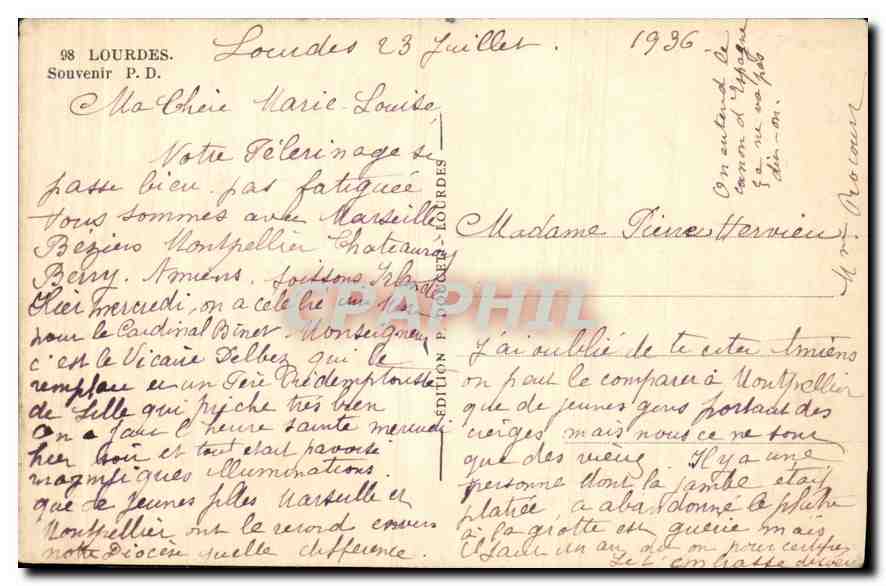 98 LOURDES.
Souvenir P. D.
Lourdes 23 Juillet. 1936
Ma Chère Marie-Louise,
Notre Pélerinage se
passe bien. pas fatiguée
Nous sommes avec Marseille
Béziers Montpellier Chateauroux
Berry. Amiens. Soissons, Irlande
Hier mercredi, on a célébré
pour le Cardinal Binet Monseigneur
c'est le Vicaire Delbez qui le
remplace et un Père Rédemptoriste
de Lille qui prèche très bien
On a fait l'heure sainte mercredi
hier soir et tout était pavoisé
magnifiques illuminations.
que de Jeunes filles Marseille et
Montpellier ont le record envers
notre Diocèse quelle différence.
EDITION P. DOUCET - LOURDES
CPAPHIL
On entend le
canon d'Espagne
ça ne va pas
dit-on.
Madame Pierre Hervieu
J'ai oublié de te citer Amiens
on peut le comparer à Montpellier
que de jeunes gens portant des
cierges mais nous ce ne sont
que des vieux. Il y a une
personne dont la jambe était
platrée, a abandonné le plâtre
à la grotte est guérie mais
il faut un an dit on pour certifier